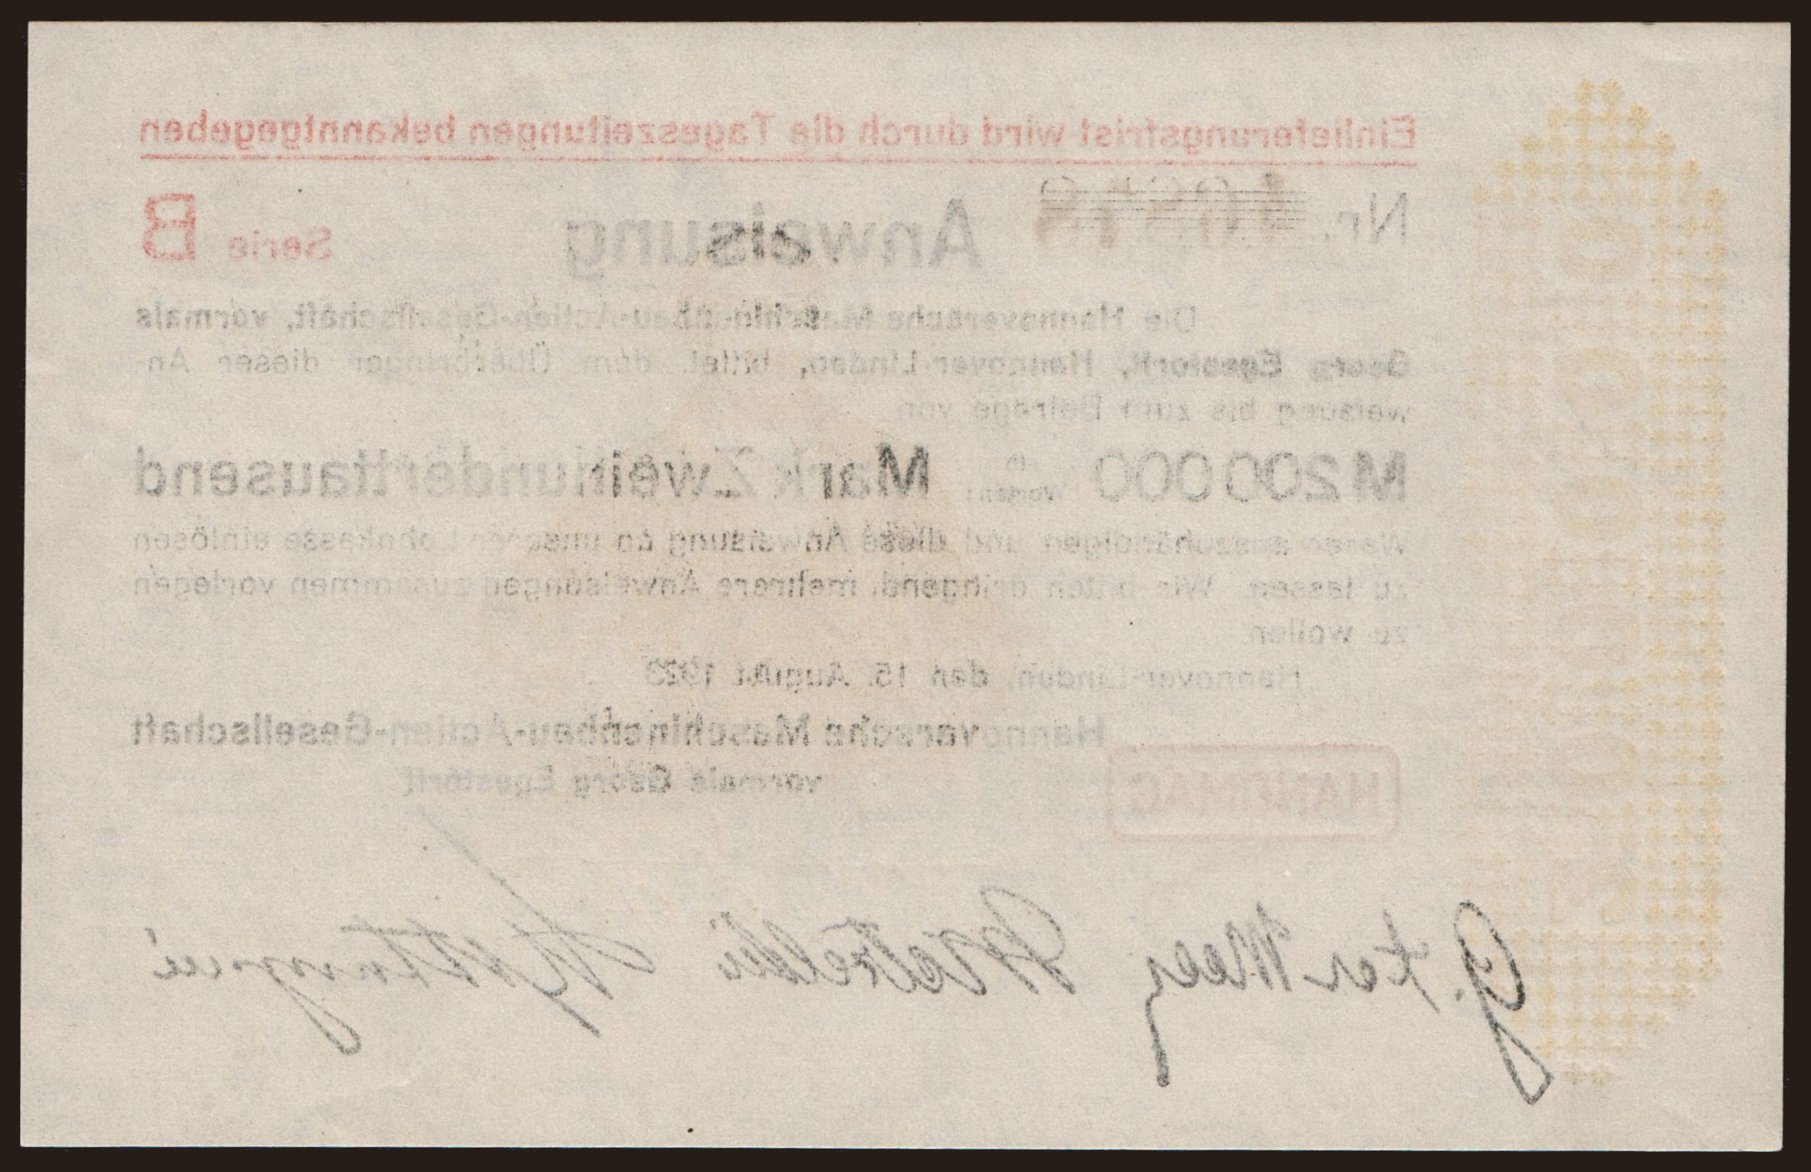 Einlieferungsfrist wird durch die Tageszeitungen bekanntgegeben
Nr. Anweisung Serie B
Die Hannoversche Maschinenbau-Actien-Gesellschaft, vormals
Georg Egestorff, Hannover-Linden, bittet dem Überbringer dieser An-
weisung bis zum Betrage von
M 200 000 in Worten: Mark Zweihunderttausend
Waren auszuhändigen und diese Anweisung an unserer Lohnkasse einlösen
zu lassen. Wir bitten dringend, mehrere Anweisungen zusammen vorlegen
zu wollen.
Hannover-Linden, den 15. August 1923
Hannoversche Maschinenbau-Actien-Gesellschaft
vormals Georg Egestorff
HANOMAG
G. ter Meer